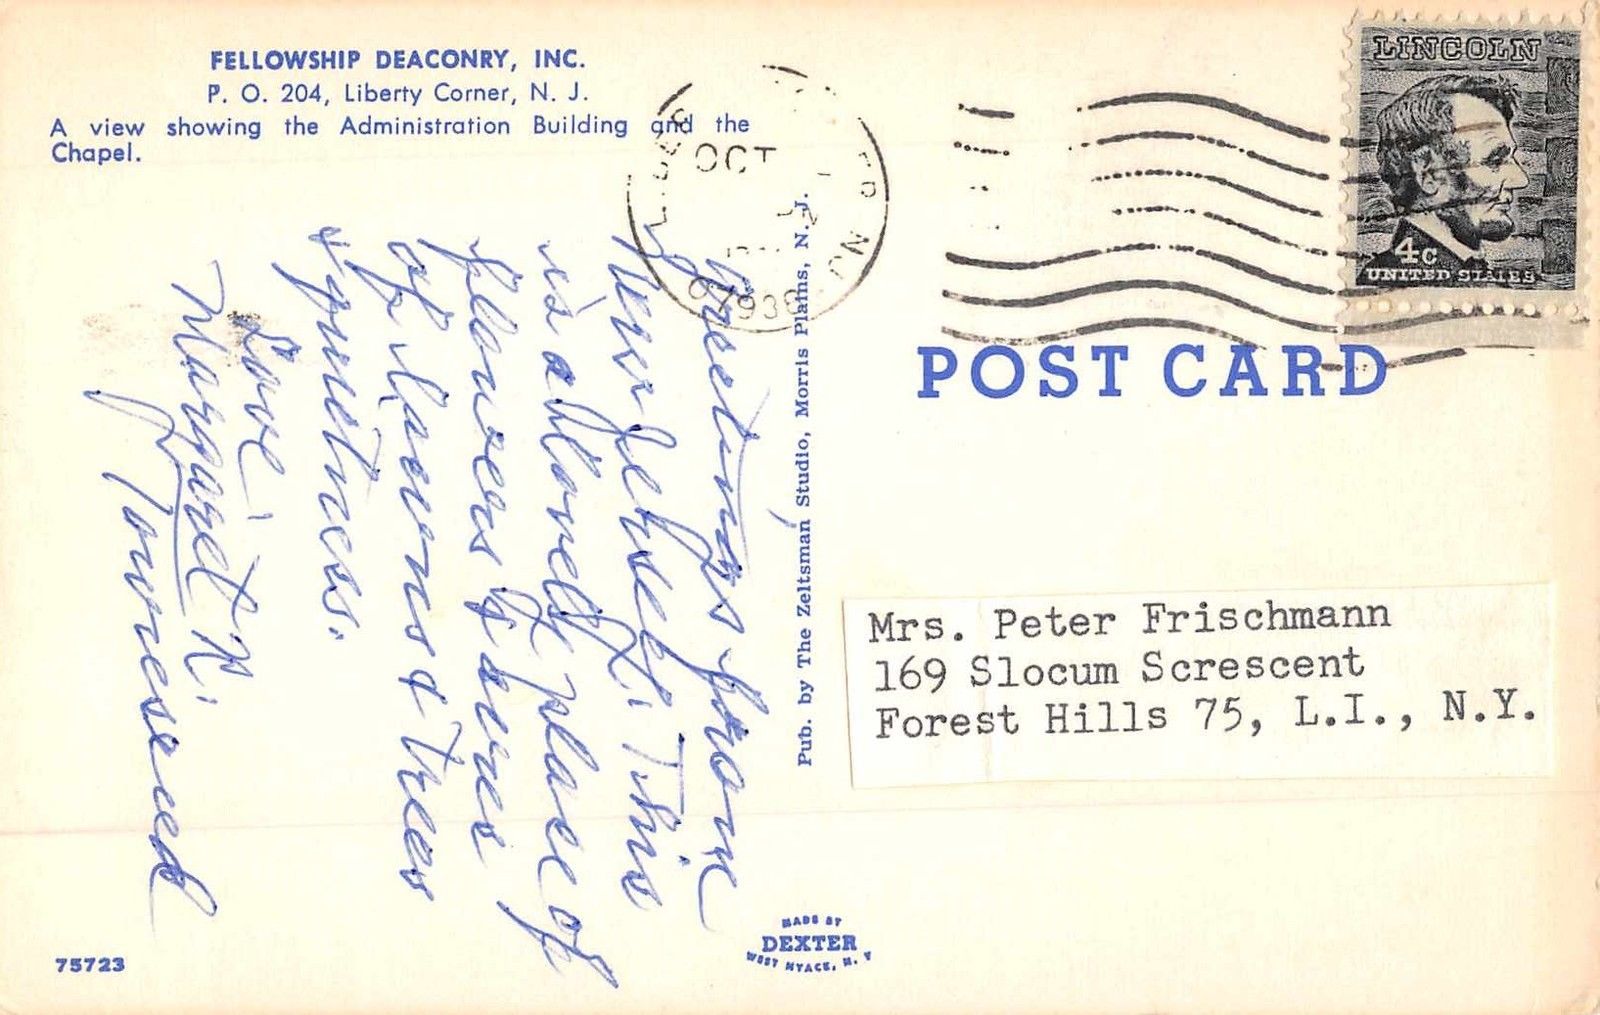 FELLOWSHIP DEACONRY, INC.
P. O. 204, Liberty Corner, N. J.
A view showing the Administration Building and the
Chapel.
OCT
NJ
07938
LINCOLN
4c
UNITED STATES
POST CARD
Greetings from
New Jersey. This
is a lovely place of
flowers & acres
of lawns & trees
& quietness.
Love
Margaret N.
Pub. by The Zeltsman Studio, Morris Plains, N. J.
Mrs. Peter Frischmann
169 Slocum Screscent
Forest Hills 75, L.I., N.Y.
MADE BY
DEXTER
WEST NYACK, N. Y
75723